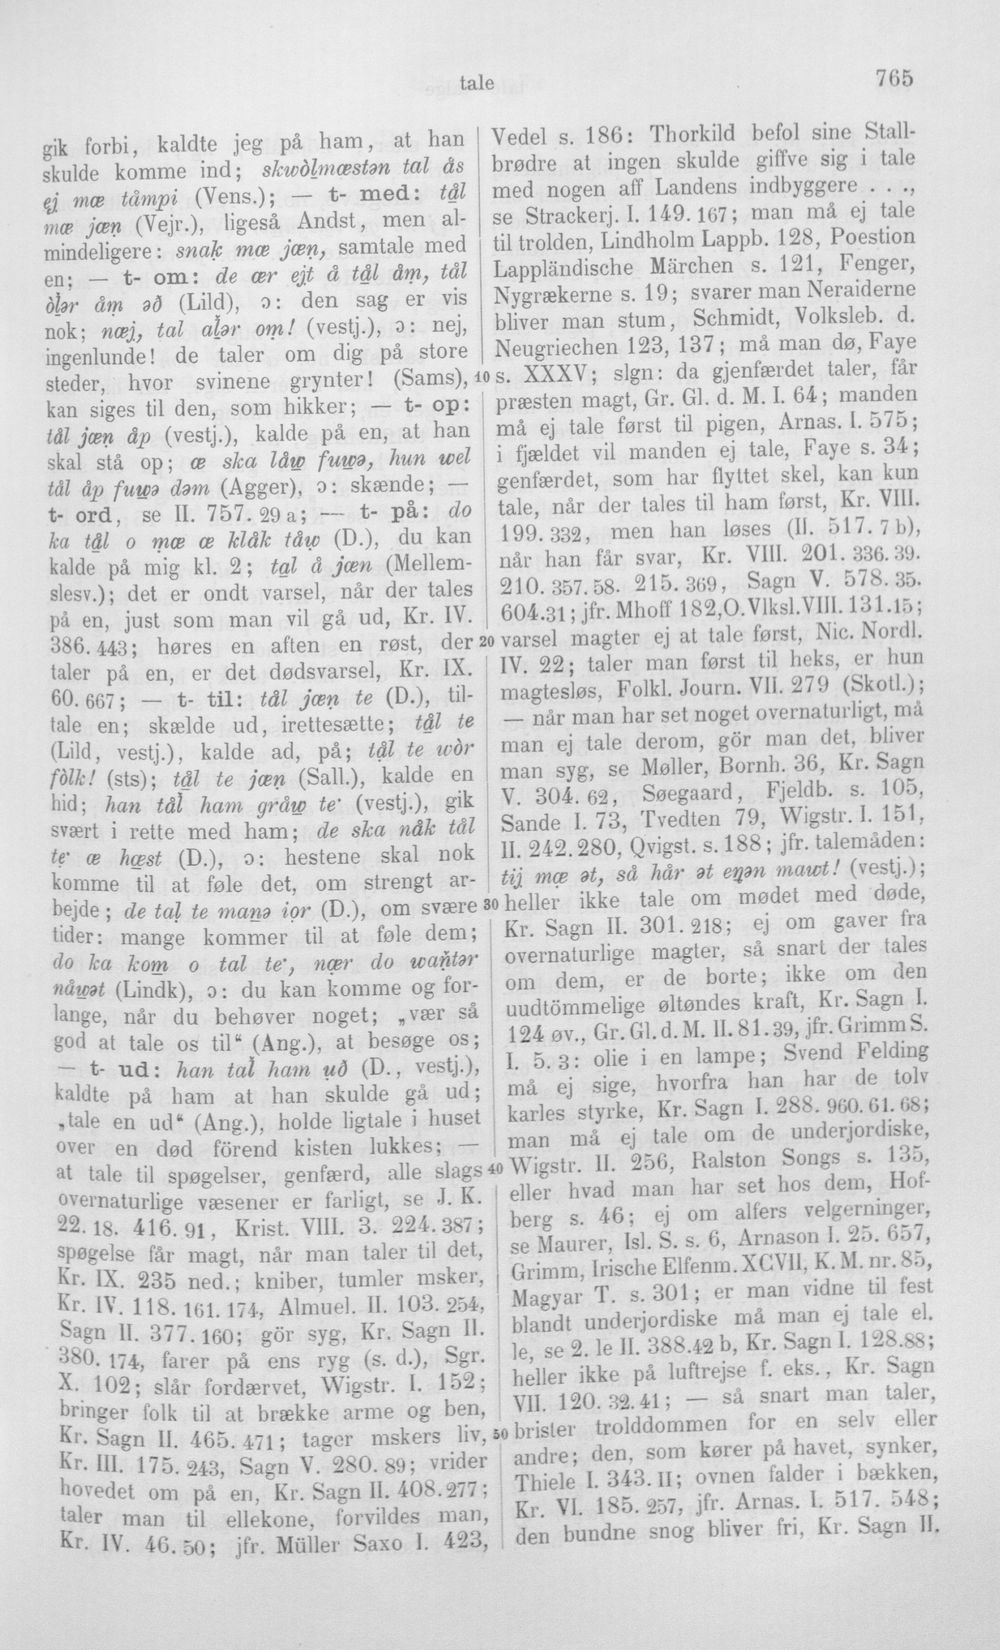 tale
765
gik forbi, kaldte jeg på ham, at han
skulde komme ind; skwòlmæstən tal ås
ej mæ tåmpi (Vens.); — t- med: tål
mæ jæn (Vejr.), ligeså Andst, men al-
mindeligere: snak mæ jæn, samtale med
en; — t- om: de ær ejt å tål åm, tål
òlər åm əð (Lild), ɔ: den sag er vis
nok; næj, tal alər om! (vestj.), ɔ: nej,
ingenlunde! de taler om dig på store
steder, hvor svinene grynter! (Sams), 10
kan siges til den, som hikker; — t- op:
tål jæn åp (vestj.), kalde på en, at han
skal stå op; æ ska låw fuwə, hun wel
tål åp fuwə dəm (Agger), ɔ: skænde; —
t- ord, se II. 757. 29 a; — t- på: do
ka tål o mæ æ klåk tåw (D.), du kan
kalde på mig kl. 2; tal å jæn (Mellem-
slesv.); det er ondt varsel, når der tales
på en, just som man vil gå ud, Kr. IV.
386. 443; høres en aften en røst, der 20
taler på en, er det dødsvarsel, Kr. IX.
60. 667; — t- til: tål jæn te (D.), til-
tale en; skælde ud, irettesætte; tål te
(Lild, vestj.), kalde ad, på; tål te wòr
fòlk! (sts); tål te jæn (Sall.), kalde en
hid; han tål ham gråw te· (vestj.), gik
svært i rette med ham; de ska nåk tål
te· æ hæst (D.), ɔ: hestene skal nok
komme til at føle det, om strengt ar-
bejde; de tal te manə ior (D.), om svære 30
tider: mange kommer til at føle dem;
do ka kom o tal te·, nær do wańtər
nåwət (Lindk), ɔ: du kan komme og for-
lange, når du behøver noget; „vær så
god at tale os til“ (Ang.), at besøge os;
— t- ud: han tal ham uð (D., vestj.),
kaldte på ham at han skulde gå ud;
„tale en ud“ (Ang.), holde ligtale i huset
over en død förend kisten lukkes; —
at tale til spøgelser, genfærd, alle slags 40
overnaturlige væsener er farligt, se J. K.
22. 18. 416. 91, Krist. VIII. 3. 224. 387;
spøgelse får magt, når man taler til det,
Kr. IX. 235 ned.; kniber, tumler msker,
Kr. IV. 118. 161. 174, Almuel. II. 103. 254,
Sagn II. 377. 160; gör syg, Kr. Sagn II.
380. 174, farer på ens ryg (s. d.), Sgr.
X. 102; slår fordærvet, Wigstr. I. 152;
bringer folk til at brække arme og ben,
Kr. Sagn II. 465. 471; tager mskers liv, 50
Kr. III. 175. 243, Sagn V. 280. 89; vrider
hovedet om på en, Kr. Sagn II. 408. 277;
taler man til ellekone, forvildes man,
Kr. IV. 46. 50; jfr. Müller Saxo I. 423,
Vedel s. 186: Thorkild befol sine Stall-
brødre at ingen skulde giffve sig i tale
med nogen aff Landens indbyggere . . .,
se Strackerj. I. 149. 167; man må ej tale
til trolden, Lindholm Lappb. 128, Poestion
Lappländische Märchen s. 121, Fenger,
Nygrækerne s. 19; svarer man Neraiderne
bliver man stum, Schmidt, Volksleb. d.
Neugriechen 123, 137; må man dø, Faye
s. XXXV; slgn: da gjenfærdet taler, får
præsten magt, Gr. Gl. d. M. I. 64; manden
må ej tale først til pigen, Arnas. I. 575;
i fjældet vil manden ej tale, Faye s. 34;
genfærdet, som har flyttet skel, kan kun
tale, når der tales til ham først, Kr. VIII.
199. 332, men han løses (II. 517. 7 b),
når han får svar, Kr. VIII. 201. 336. 39.
210. 357. 58. 215. 369, Sagn V. 578. 35.
604. 31; jfr. Mhoff 182, O. Vlksl. VIII. 131. 15;
varsel magter ej at tale først, Nic. Nordl.
IV. 22; taler man først til heks, er hun
magtesløs, Folkl. Journ. VII. 279 (Skotl.);
— når man har set noget overnaturligt, må
man ej tale derom, gör man det, bliver
man syg, se Møller, Bornh. 36, Kr. Sagn
V. 304. 62, Søegaard, Fjeldb. s. 105,
Sande I. 73, Tvedten 79, Wigstr. I. 151,
II. 242. 280, Qvigst. s. 188; jfr. talemåden:
tij mæ ət, så hår ət eŋən mawt! (vestj.);
heller ikke tale om mødet med døde,
Kr. Sagn II. 301. 218; ej om gaver fra
overnaturlige magter, så snart der tales
om dem, er de borte; ikke om den
uudtömmelige øltøndes kraft, Kr. Sagn I.
124 øv., Gr. Gl. d. M. II. 81. 39, jfr. Grimm S.
I. 5. 3: olie i en lampe; Svend Felding
må ej sige, hvorfra han har de tolv
karles styrke, Kr. Sagn I. 288. 960. 61. 68;
man må ej tale om de underjordiske,
Wigstr. II. 256, Ralston Songs s. 135,
eller hvad man har set hos dem, Hof-
berg s. 46; ej om alfers velgerninger,
se Maurer, Isl. S. s. 6, Arnason I. 25. 657,
Grimm, Irische Elfenm. XCVII, K. M. nr. 85,
Magyar T. s. 301; er man vidne til fest
blandt underjordiske må man ej tale el.
le, se 2. le II. 388. 42 b, Kr. Sagn I. 128. 88;
heller ikke på luftrejse f. eks., Kr. Sagn
VII. 120. 32. 41; — så snart man taler,
brister trolddommen for en selv eller
andre; den, som kører på havet, synker,
Thiele I. 343. II; ovnen falder i bækken,
Kr. VI. 185. 257, jfr. Arnas. I. 517. 548;
den bundne snog bliver fri, Kr. Sagn II.